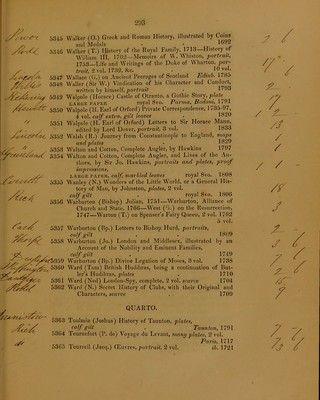 293
5345 Walker (O.) Greek and Roman History, illustrated by Coins
and Medals 1692
5346 Walker (T.) History of the Royal Family, 1713—History of
William III, 1702—Memoirs of W. Whiston, portrait,
1753—Life and Writings of the Duke of Wharton, por-
trait, 2 vol. 1732, &c. 10 vol.
5347 Wallace (G.) on Ancient Peerages of Scotland Edinb. 1785
5348 Waller (Sir W.) Vindication of his Character and Conduct,
written by himself, portrait 1793
5349 Walpole (Horace) Castle of Otranto, a Gothic Story, plate
LARGE PAPER royal 8vo. Parma, Bodoni, 1791
5350 Walpole (H. Earl of Orford) Private Correspondence, 1735-97,
4 vol. calf extra, gilt leaves 1820
5351 Walpole (H. Earl of Orford) Letters to Sir Horace Mann,
edited by Lord Dover, portrait, 3 vol. 1833
5352 Walsh (R.) Journey from Constantinople to England, maps
and plates 1829
5353 Walton and Cotton, Complete Angler, by Hawkins 1797
5354 Walton and Cotton, Complete Angler, and Lives of the Au-
thors, by Sir Jo. Hawkins, portraits and plates, proof
impressions,
LARGE PAPER, calf, marbled leaves royal 8vo. 1808
5355 Wanley (N.) Wonders of the Little World, or a General His-
tory of Man, by Johnston, plates, 2 vol.
calf gilt royal 8vo. 1806
5356 Warburton (Bishop) Julian, 1751—Warburton, Alliance of
Church and State, 1766—West (G.) on the Resurrection,
1747—Warton (T.) on Spenser's Fairy Queen, 2 vol. 1762
5 vol.
5357 Warburton (Bp.) Letters to Bishop Hurd, portraits,
calf gilt 1809
5358 Warburton (Jo.) London and Middlesex, illustrated by an
Account of the Nobility and Eminent Families,
calf gilt 1749
5359 Warburton (Bp.) Divine Legation of Moses, 3 vol. 1738
5360 Ward (Tom) British Hudibras, being a continuation of But-
ler's Hudibras, plates 1710
5361 Ward (Ned) London-Spy, complete, 2 vol. scarce 1704
5362 Ward (N.) Secret History of Clubs, with their Original and
Characters, scarce 1709
QUARTO.
5363 Toulmin (Joshua) History of Taunton, plates,
calf gilt Taunton, 1791
5364 Tournefort (P. de) Voyage du Levant, many plates, 2 vol.
Paris, 1717
5365 Tourreil (Jacq.) Œuvres, portrait, 2 vol. ib. 1721